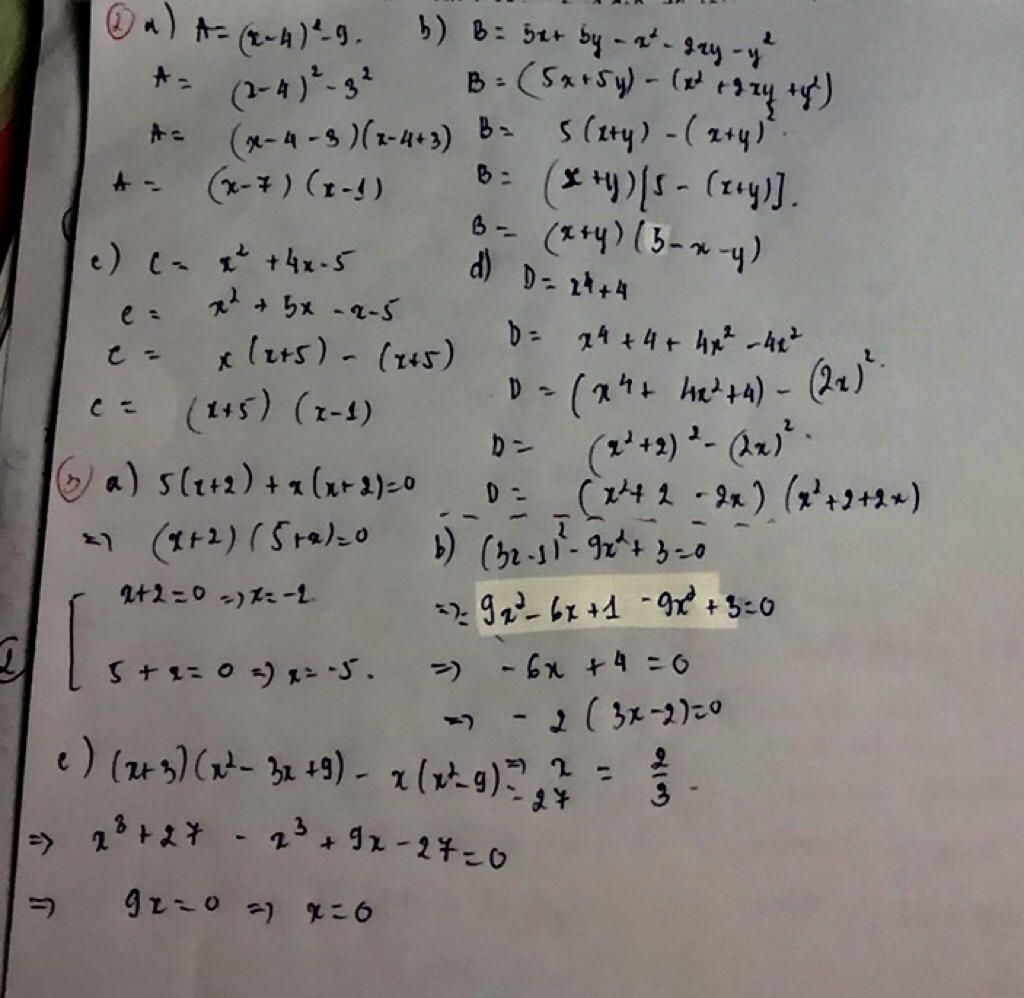 ② a) A = (x-4)² - 9.
A = (x-4)² - 3²
A = (x-4-3)(x-4+3)
A = (x-7)(x-1)
b) B = 5x + 5y - x² - 2xy - y²
B = (5x+5y) - (x² + 2xy + y²)
B = 5(x+y) - (x+y)².
B = (x+y)[5 - (x+y)].
B = (x+y)(5-x-y)
c) C = x² + 4x - 5
C = x² + 5x - x - 5
C = x(x+5) - (x+5)
C = (x+5)(x-1)
d) D = x⁴ + 4
D = x⁴ + 4 + 4x² - 4x²
D = (x⁴ + 4x² + 4) - (2x)².
D = (x²+2)² - (2x)².
D = (x²+2-2x)(x²+2+2x)
③ a) 5(x+2) + x(x+2) = 0
=> (x+2)(5+x) = 0
[ x+2 = 0 => x = -2.
5 + x = 0 => x = -5.
b) (3x-1)² - 9x² + 3 = 0
=> 9x² - 6x + 1 - 9x² + 3 = 0
=> -6x + 4 = 0
=> -2(3x-2) = 0
=> x = 2/3.
c) (x+3)(x²-3x+9) - x(x²-9) = 27
=> x³ + 27 - x³ + 9x - 27 = 0
=> 9x = 0 => x = 0